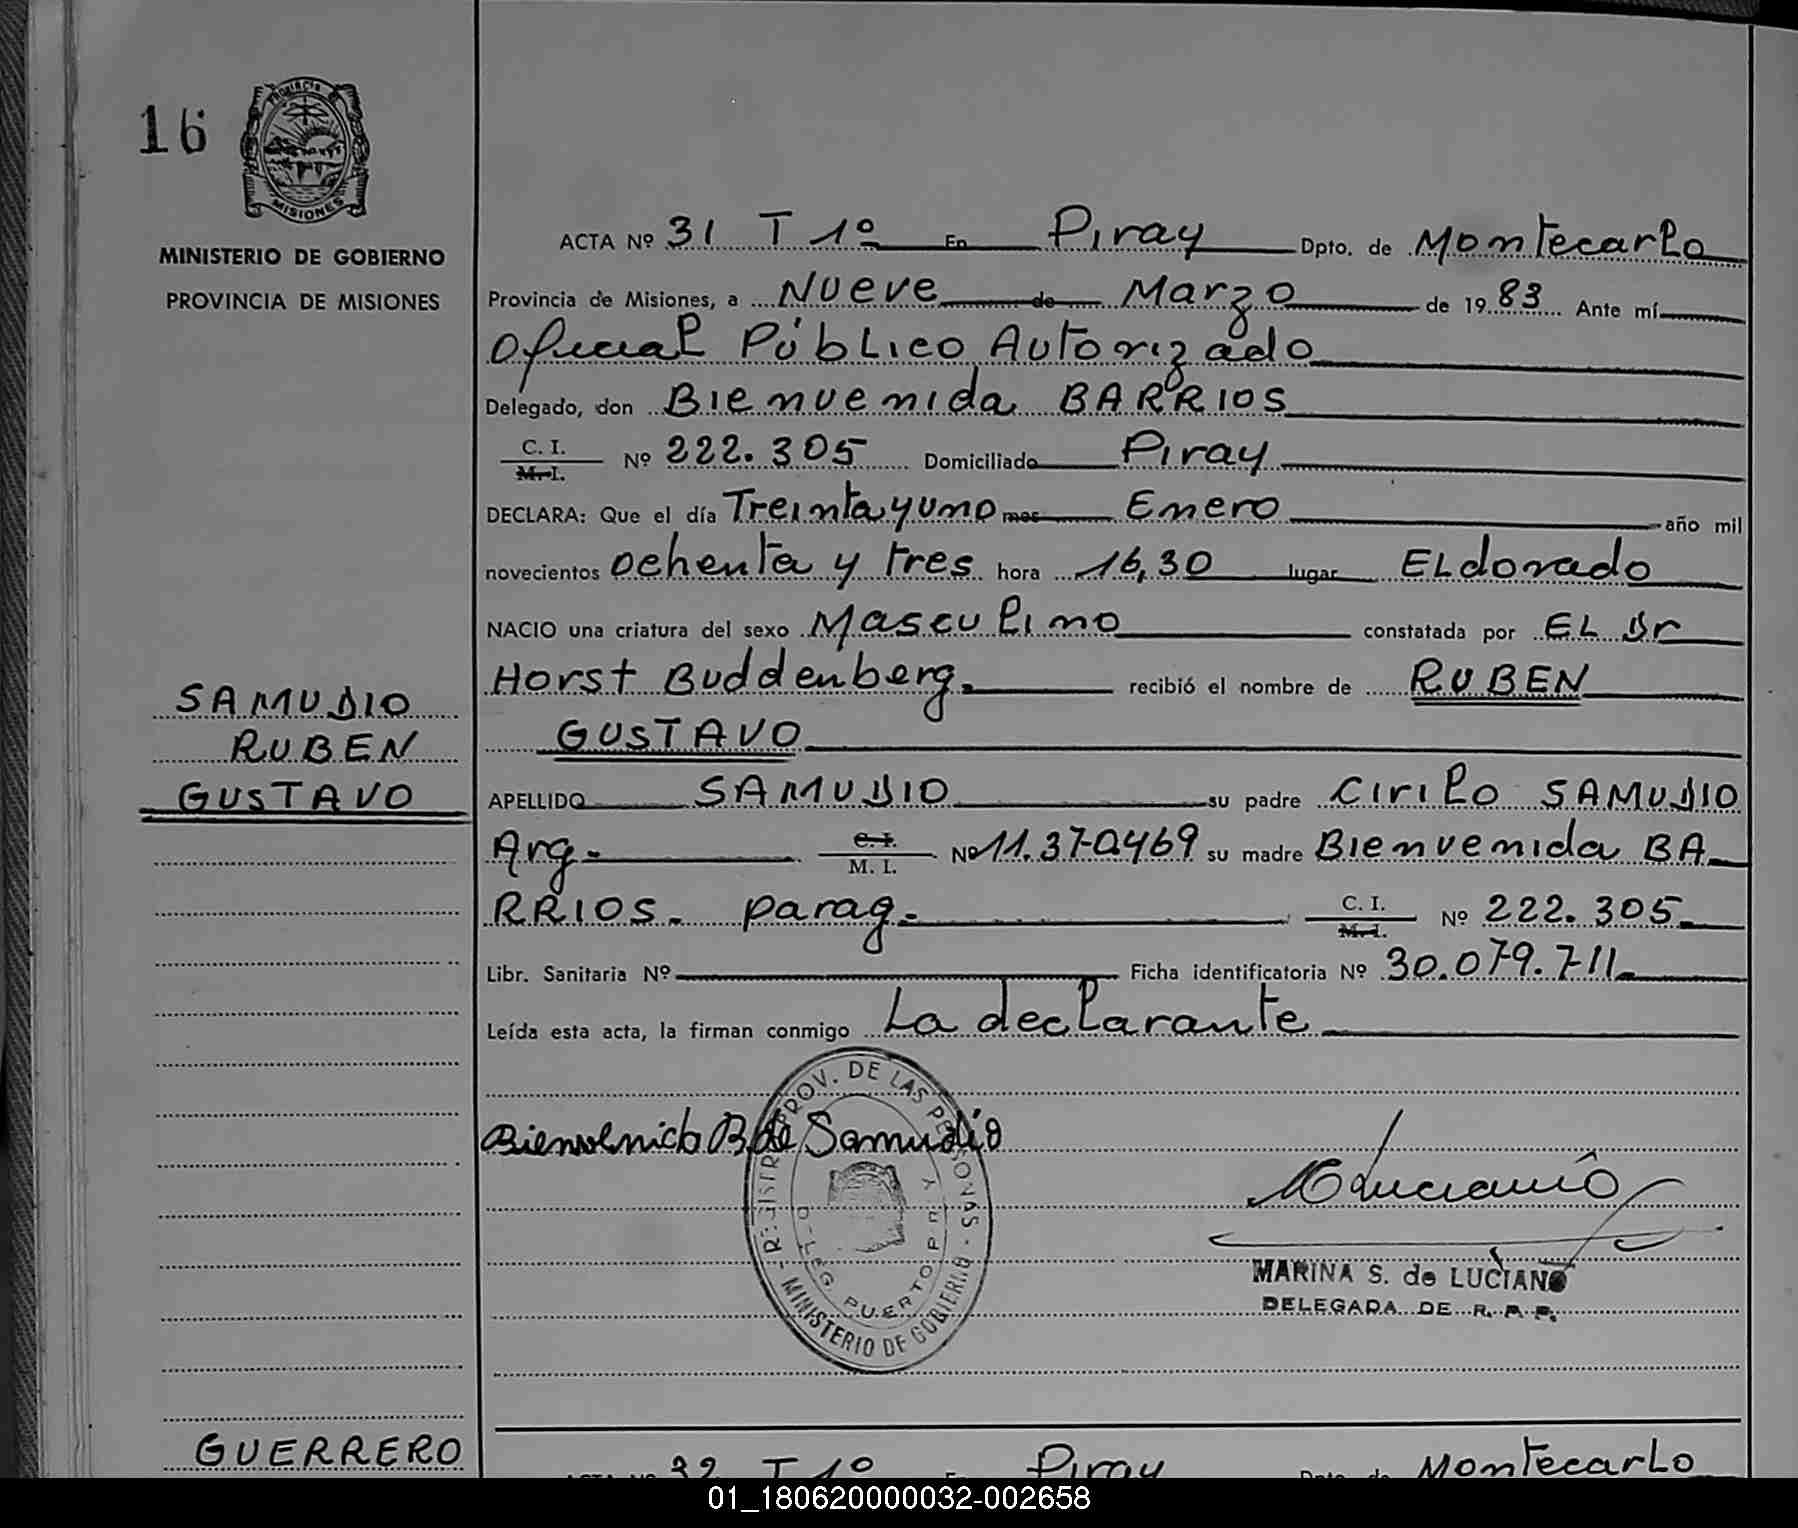 16
PROVINCIA DE
MISIONES
MINISTERIO DE GOBIERNO
PROVINCIA DE MISIONES
SAMUDIO
RUBEN
GUSTAVO
GUERRERO
ACTA Nº 31 T 1º En Piray Dpto. de Montecarlo
Provincia de Misiones, a Nueve de Marzo de 1983 Ante mí
Oficial Público Autorizado
Delegado, don Bienvenida BARRIOS
C. I.
M. I. Nº 222.305 Domiciliado Piray
DECLARA: Que el día Treinta y uno mes Enero año mil
novecientos ochenta y tres hora 16,30 lugar ELdorado
NACIO una criatura del sexo Masculino constatada por EL Dr
Horst Buddenberg. recibió el nombre de RUBEN
GUSTAVO
APELLIDO SAMUDIO su padre Cirilo SAMUDIO
Arg. C. I.
M. I. Nº 11.370469 su madre Bienvenida BA
RRIOS. parag. C. I.
M. I. Nº 222.305
Libr. Sanitaria Nº Ficha identificatoria Nº 30.079.711
Leída esta acta, la firman conmigo La declarante
Bienvenida B de Samudio
REGISTRO PROV. DE LAS PERSONAS
MINISTERIO DE GOBIERNO
DELEG. PUERTO PIRAY
MLuciano
MARINA S. de LUCIANO
DELEGADA DE R. P. P.
ACTA Nº 32 T 1º En Piray Dpto. de Montecarlo
01_180620000032-002658